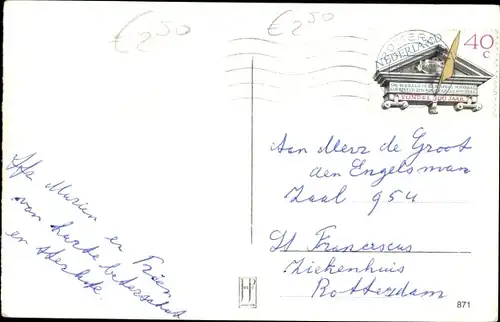 € 2 50
€ 2 50
40 c
NEDERLAND
VONDEL 300 JAAR
Aan Mevr de Groot
den Engelsman
Zaal 954
St Franciscus
Ziekenhuis
Rotterdam
Marien en Trien
van harte beterschap
en sterkte.
871